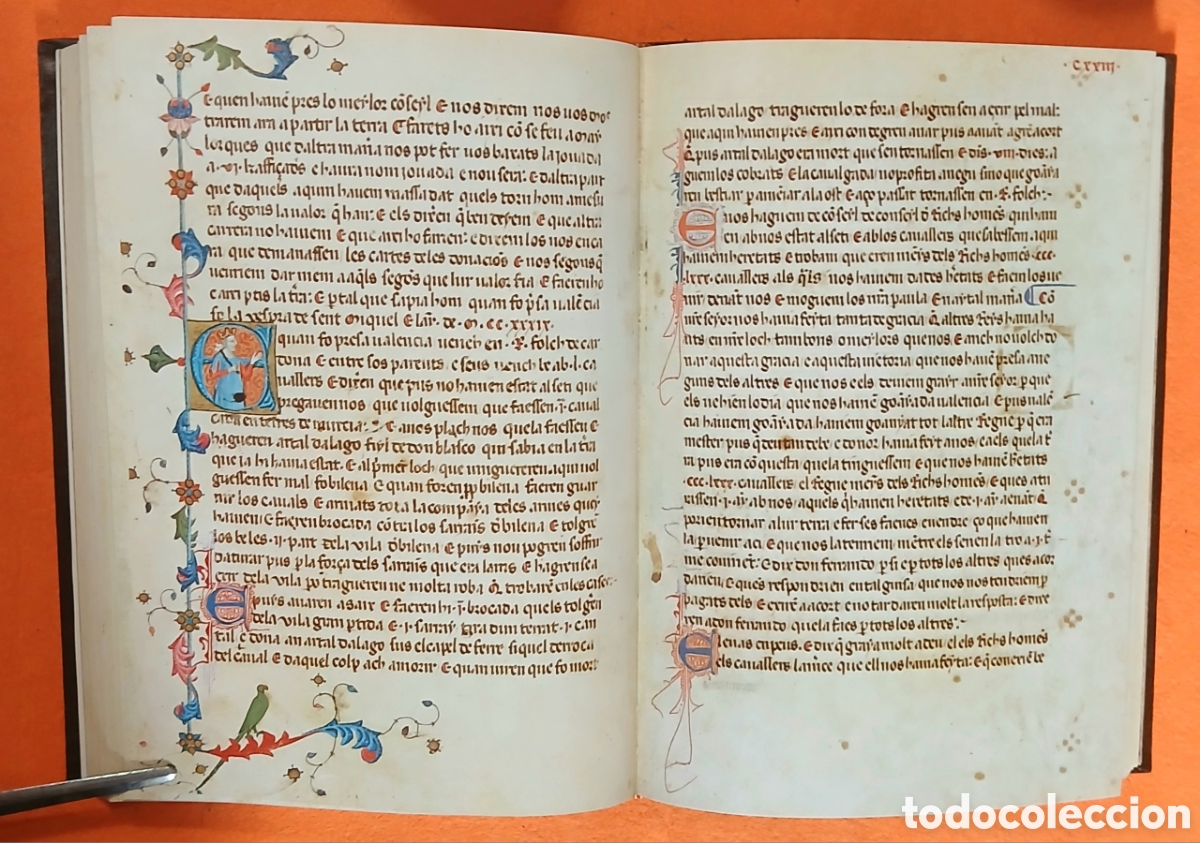 E quen havem pres lo meylor cōseyl E nos direm nos uos
trarem ara a partir la terra E farets ho axi cō se feu a may
lorques que daltra maña nos pot fer uos baxats la jouada
a .VI. kaffiçades E haura nom jouada e nou sera: E daltra part
que daquels a quin havem massa dat quels torn hom a mesu
ra segons la ualor q̄ han: E els dixeren q̄ ben deyem E que altra
carrera no hi havem E que axi ho farem: e direm los nos enca
ra que demanassen les cartes deles donacios E nos segons q̄
veuriem dar n'em a aq̄ls segōs que lur ualor sia E faeren ho
e axi ptis la t̄ra: E p tal que sapia hom quan fo p̄sa ualēcia
fo la vespra de sent Miquel E layn de .M.CC.XXXIX.
E quan fo presa ualencia uench en .R. folch de car
dona E entre sos parents e seus uench be ab .L. ca
uallers E dixeren que pus no havien estat al seti que
pregauen nos que uolguessem que faessen .I. caual
cada en terres de murcia: E a nos plach nos que la faessen E
hagueren artal dalago fiyl de don blasco qui sabia en la t̄ra
que ja hi hauia estat. E al p̄mer loch que uingueren aqui uol
guessen fer mal fo bilena E quan foren p bilena faeren guar
nir los cauals E armats tota la companya deles armes que y
havien E faeren brocada cōtra los sarraïs d bilena E tolgre
los be les .II. part dela vila d bilena E puys nou pogren soffrir
da aturar pus p la força dels sarraïs que era la ins E hagren se a
exir dela vila po tragueren ne molta roba q̄ trobarē en les cases:
E puys anaren a saix E faeren hi .I. brocada quels tolgrē
dela vila gran ptida E .I. sarray tira dun terrat .I. can
tal e dona a n artal dalago sus el capel de ferre si quel derroca
del caual E daquel colp ach a morir E quan uiren que fo mort
.CXXIII.
artal dalago tragueren lo de fora E hagren sen a exir pel mal
que aqui havien pres E axi con degren anar pus auāt agrē acort
q̄ pus artal dalago era mort que sen tornassen E dīs .VIII. dies: a
guem los cobrats E la caualgada no profita a negu sino que goañya
ren bestiar p a menjar a la ost E aço passat tornassen en .R. folch:
E nos haguem de cōseyl de conseyl d Richs homēs qui hauī
en ab nos estat al seti E ab los cauallers que sabessem a qui
hauiem heretats E trobam que eren meyns dels Richs homēs .CCC.
.LXXX. cauallers als q̄ls nos hauiem dates hētats E faem los ue
nir denāt nos E moguem los nr̄a paula E n aytal manā Cō
nr̄e seyor nos hauia feyta tanta de gracia q̄ altres Reys hauia ha
uts en nr̄e loch tam bons o meylors que nos E anch no uolch do
nar aquesta gracia e aquesta uictoria que nos hauē presa a ne
guns dels altres E que nos e els deuiem grayr a nr̄e seyor p que
els uehien lo dia que nos hauiē goayada vallencia E pus valē
cia hauiem goayada hauiem goanyat tot laltre Regne p q̄ era
mester pus q̄ deu tan de be e donor hauia feyt a nos e a els que la t̄
ra pus era conquesta que la tinguessem E que nos hauiem hētats
.CCC.LXXX. cauallers el Regne meyns dels Richs homēs: E ques atu
rassen .I. ay ab nos, aquels q̄ hauiem heretats E de .I. ay a enāt q̄
porien tornar a lur terra e fer ses faenes e uendre ço que hauien
la p uenir aci. E que nos la teniem mentre els serien la tro a .I. t̄
me couinēt: E dix don ferrando p si e p tots los altres ques acor
darien, E ques respondrien en tal guisa que nos nos tendriem p
pagats dels E exirē a acort e no tardaren molt la resposta: E dixe
ren a don ferrando que la faes p tots los altres:
E leuas en peus. E dix q̄ grayia molt a deu el els Richs homēs
els cauallers la mr̄ce que ell nos hauia feyta: E q̄ conexē be
todocoleccion